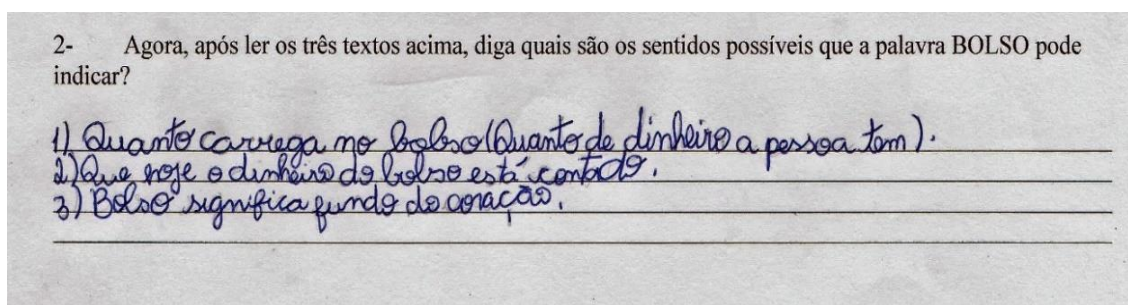 2- Agora, após ler os três textos acima, diga quais são os sentidos possíveis que a palavra BOLSO pode
indicar?
1) Quanto carrega no bolso (Quanto de dinheiro a pessoa tem).
2) Que hoje o dinheiro do bolso está contado.
3) Bolso significa fundo do coração.